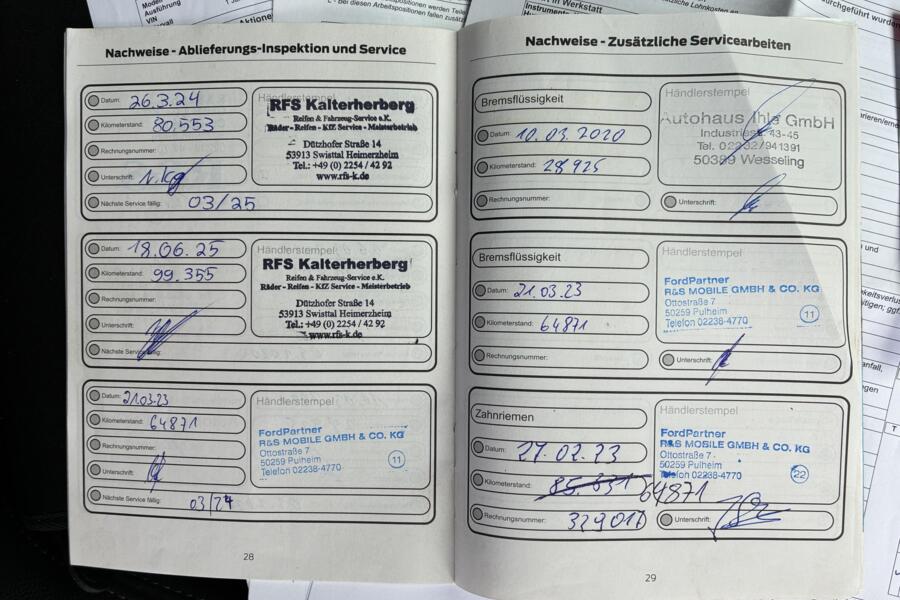 Nachweise - Ablieferungs-Inspektion und Service
Datum: 26.3.24
Kilometerstand: 80.553
Rechnungsnummer:
Unterschrift:
Nächste Service fällig: 03/25
Händlerstempel
RFS Kalterherberg
Reifen & Fahrzeug-Service e.K.
Räder - Reifen - KfZ Service - Meisterbetrieb
Dützhofer Straße 14
53913 Swisttal Heimerzheim
Tel.: +49 (0) 2254 / 42 92
www.rfs-k.de
Datum: 18.06.25
Kilometerstand: 99.355
Rechnungsnummer:
Unterschrift:
Nächste Service fällig:
Händlerstempel
RFS Kalterherberg
Reifen & Fahrzeug-Service e.K.
Räder - Reifen - KfZ Service - Meisterbetrieb
Dützhofer Straße 14
53913 Swisttal Heimerzheim
Tel.: +49 (0) 2254 / 42 92
www.rfs-k.de
Datum: 21.03.23
Kilometerstand: 64871
Rechnungsnummer:
Unterschrift:
Nächste Service fällig: 03/24
Händlerstempel
FordPartner
R&S MOBILE GMBH & CO. KG
Ottostraße 7
50259 Pulheim
Telefon 02238-4770
11
28
Nachweise - Zusätzliche Servicearbeiten
Bremsflüssigkeit
Datum: 10.03.2020
Kilometerstand: 28925
Rechnungsnummer:
Händlerstempel
Autohaus Ihle GmbH
Industriestr. 43-45
Tel. 02232/941391
50389 Wesseling
Unterschrift:
Bremsflüssigkeit
Datum: 21.03.23
Kilometerstand: 64871
Rechnungsnummer:
Händlerstempel
FordPartner
R&S MOBILE GMBH & CO. KG
Ottostraße 7
50259 Pulheim
Telefon 02238-4770
11
Unterschrift:
Zahnriemen
Datum: 27.02.23
Kilometerstand: 85.631 64871
Rechnungsnummer: 329017
Händlerstempel
FordPartner
R&S MOBILE GMBH & CO. KG
Ottostraße 7
50259 Pulheim
Telefon 02238-4770
22
Unterschrift:
29